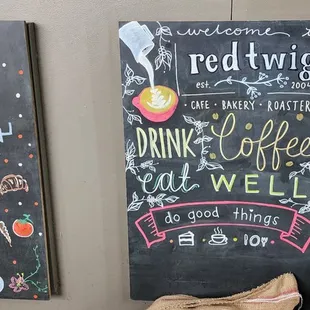 welcome to
redtwig
est. 2004
CAFE • BAKERY • ROASTER
DRINK Coffee
eat WELL
do good things